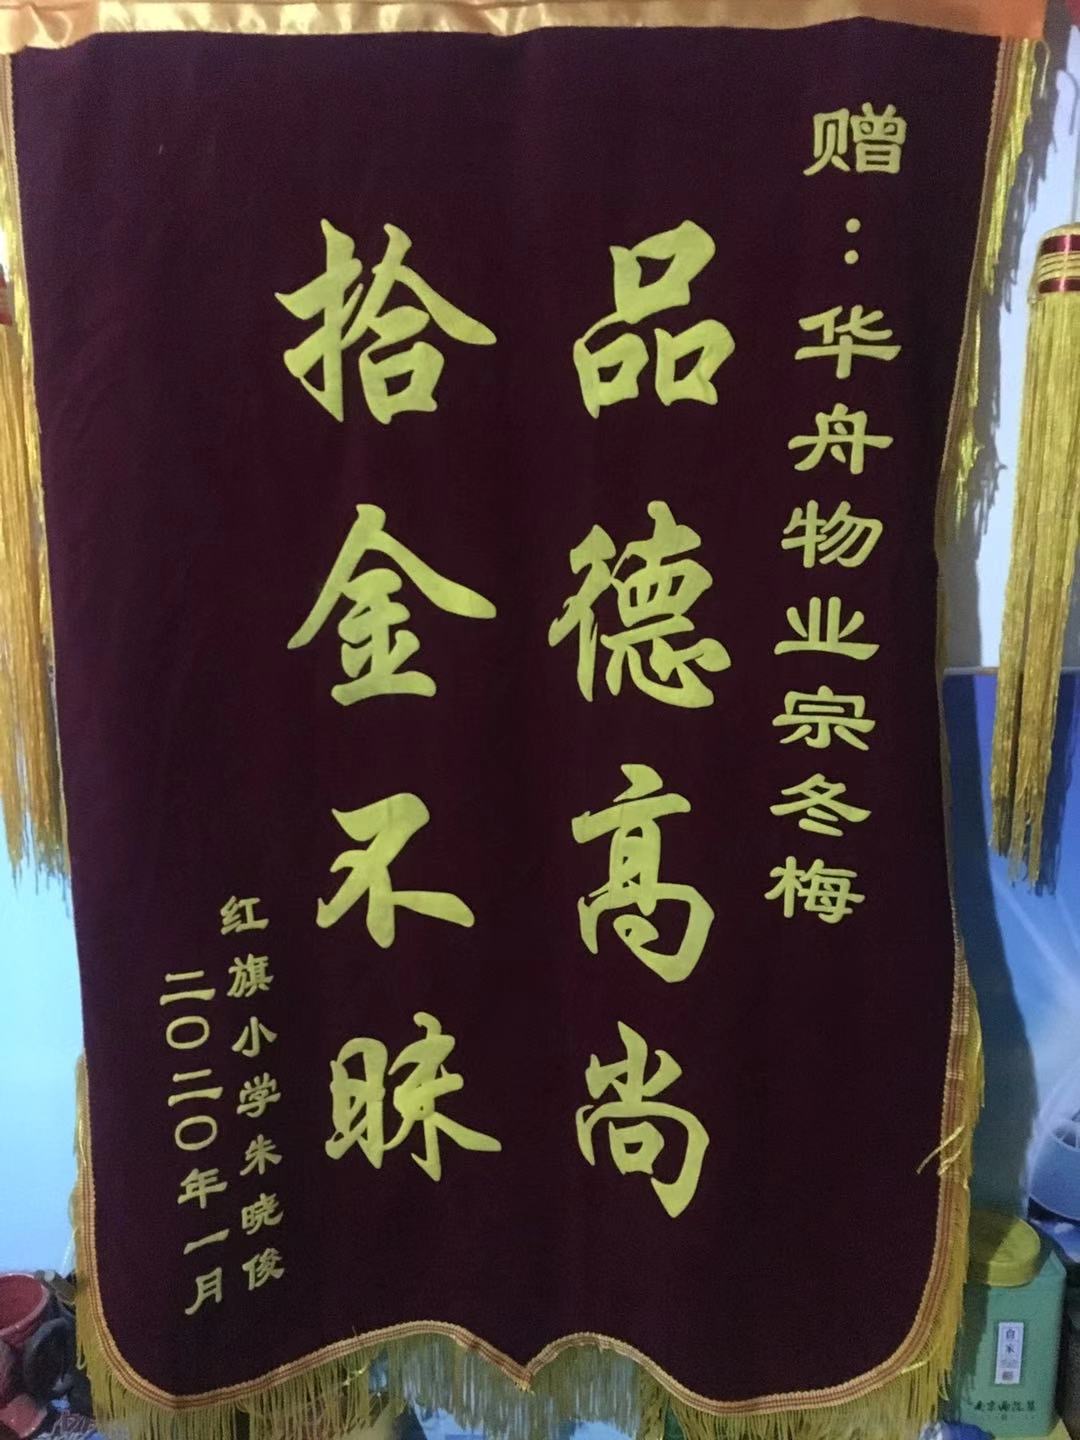 赠：华舟物业宗冬梅
品德高尚
拾金不昧
红旗小学朱晓俊
二〇二〇年一月
自家